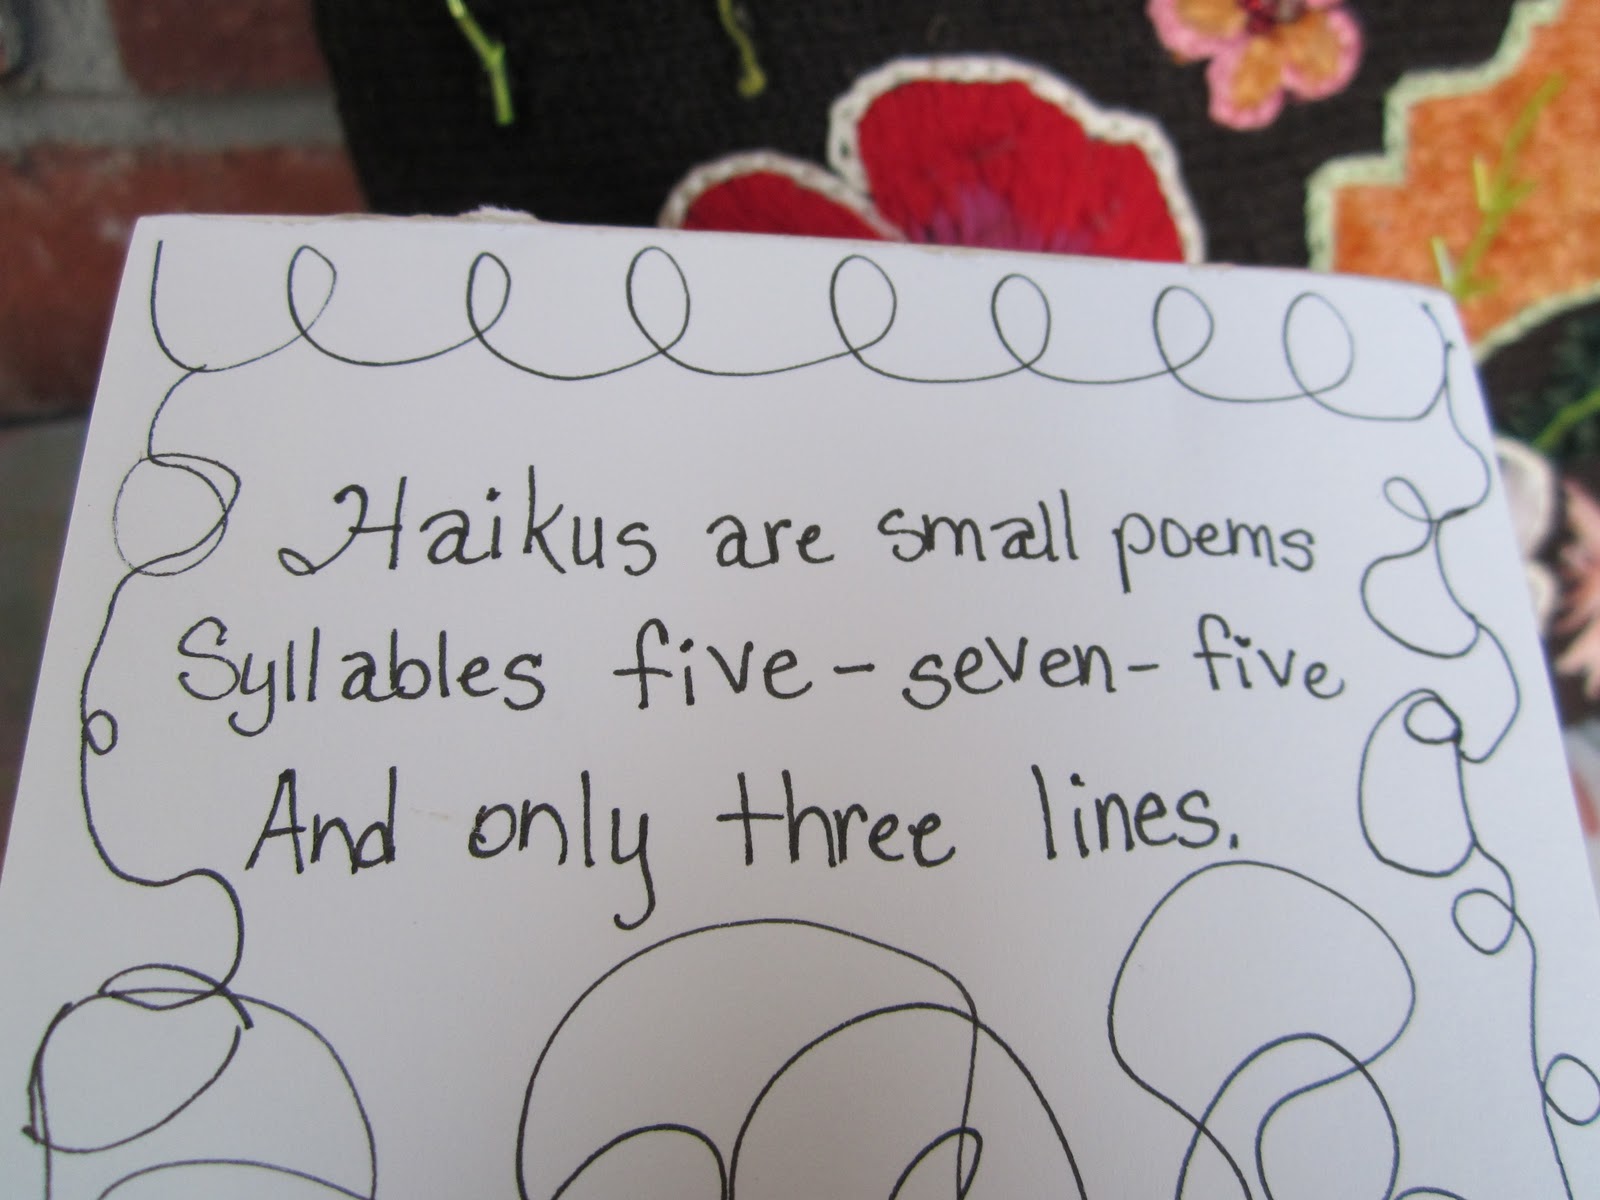 Haikus are small poems
Syllables five-seven-five
And only three lines.